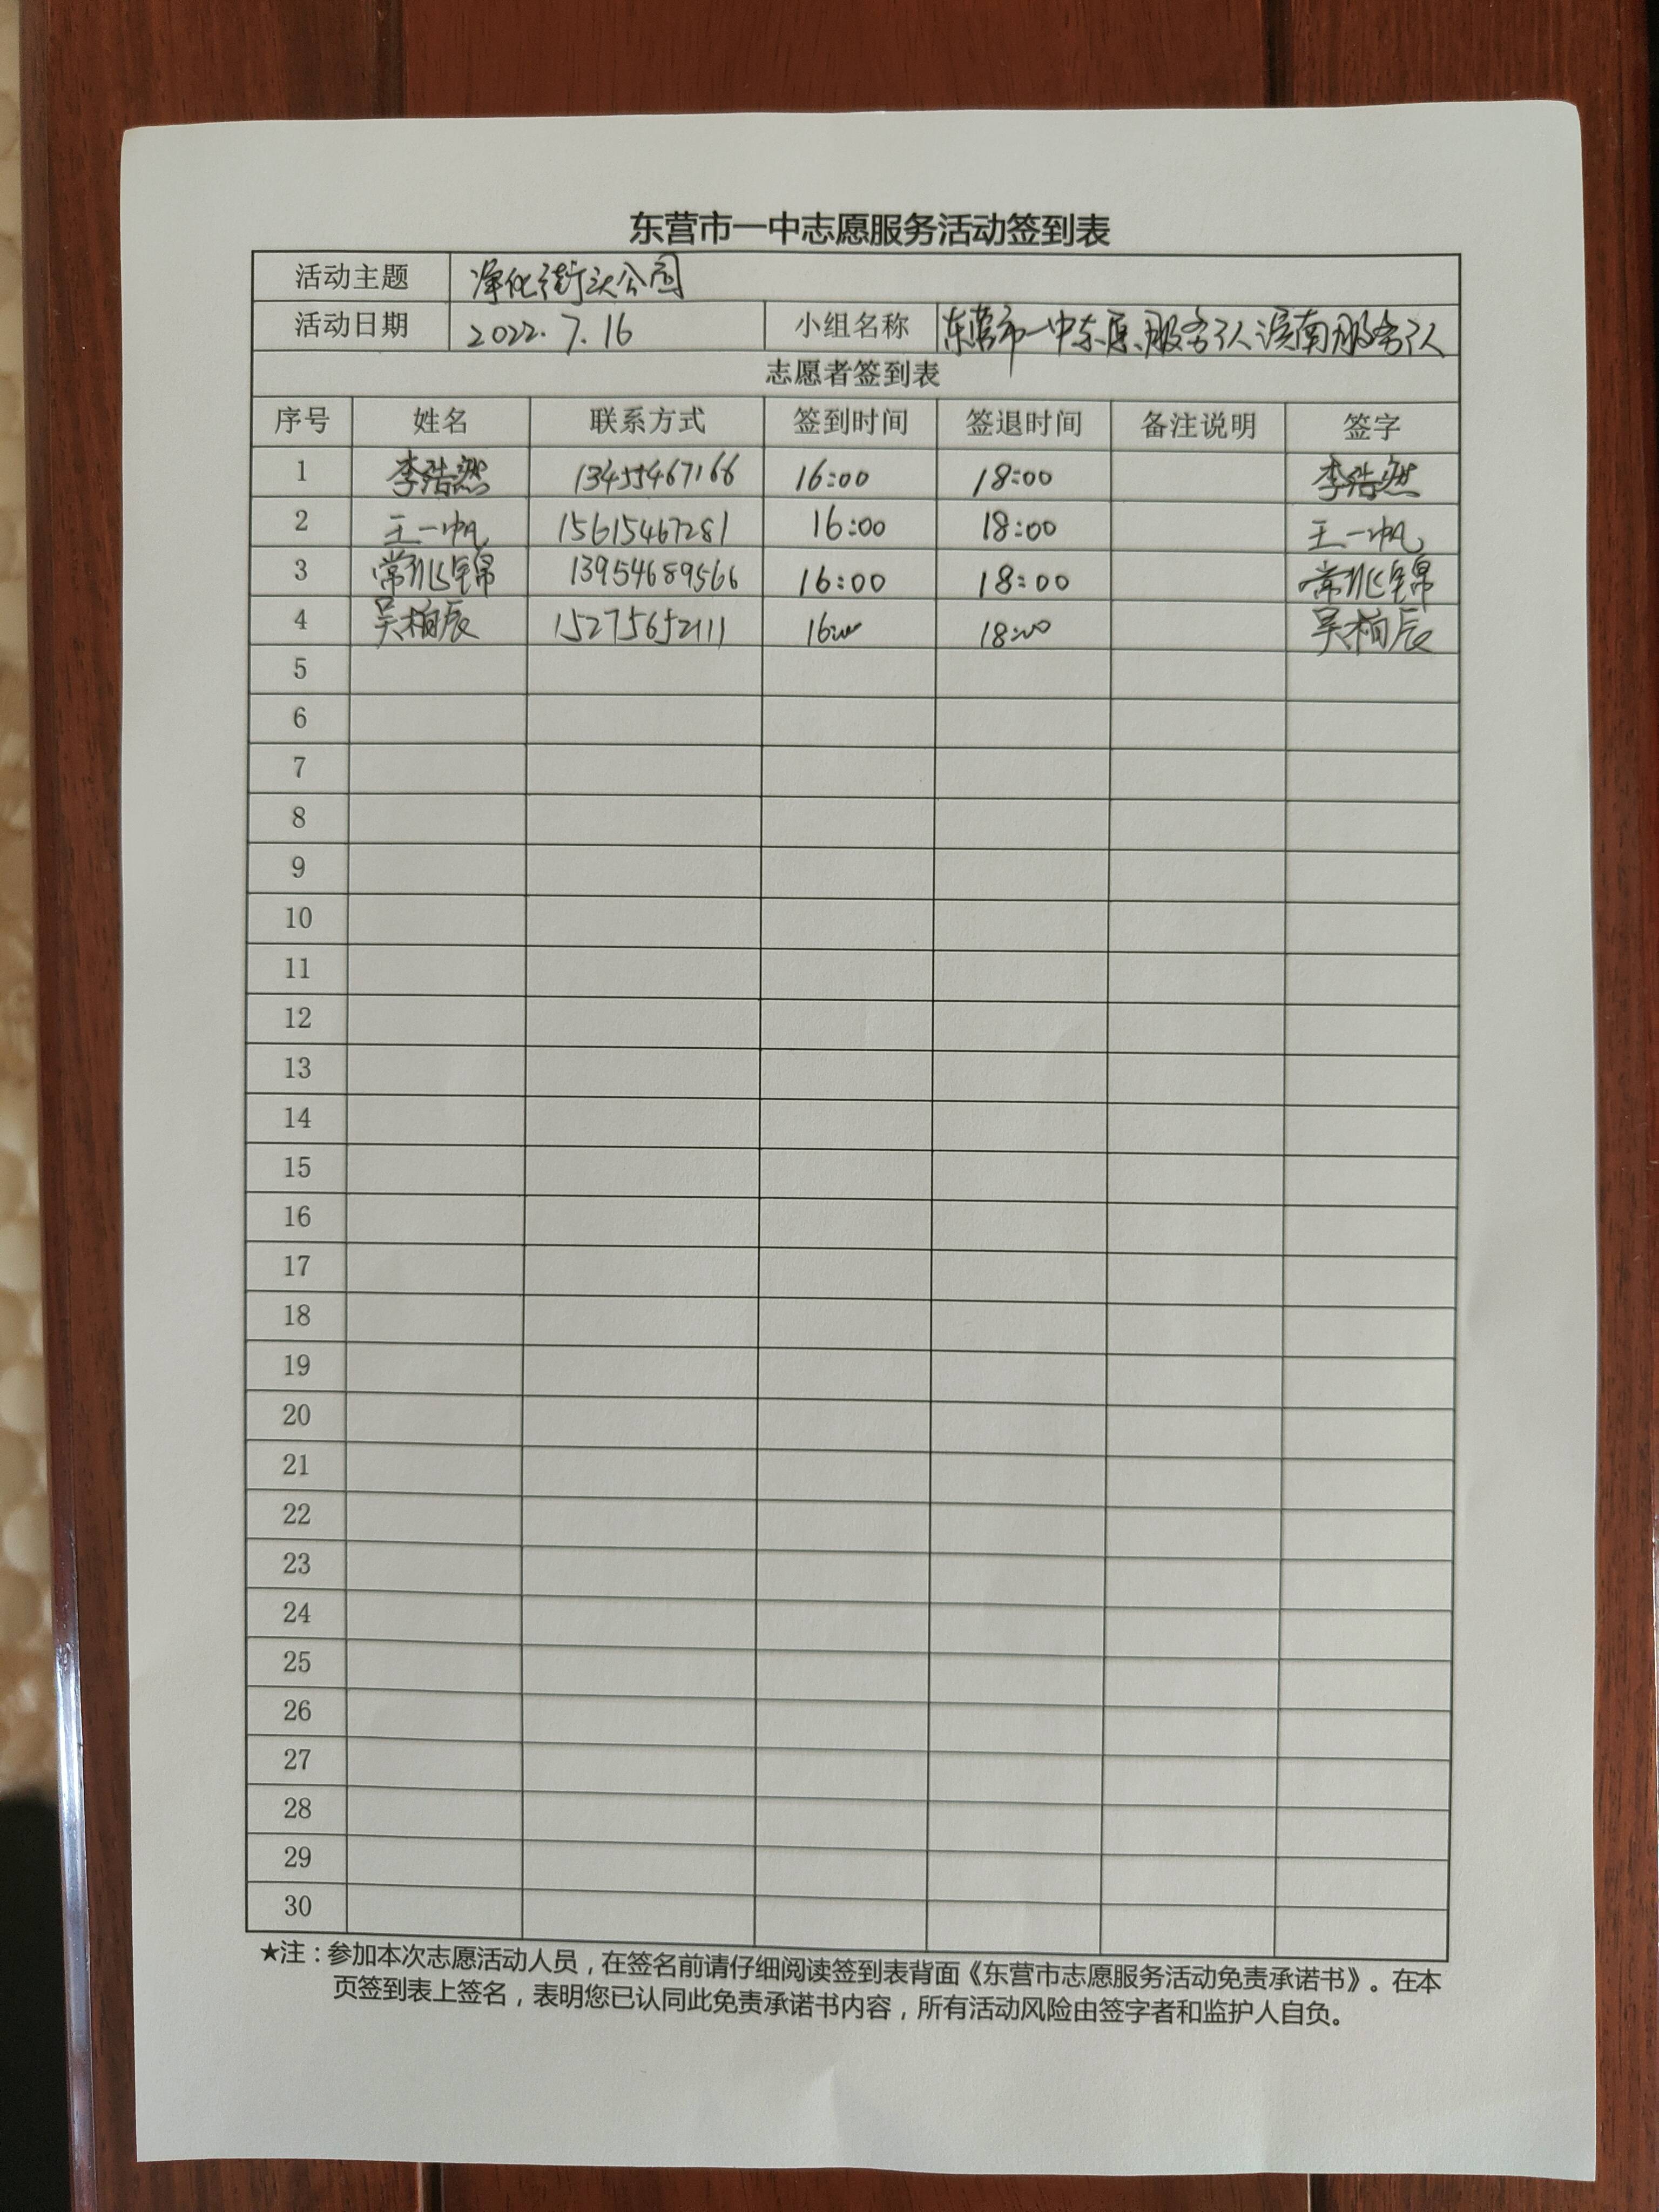 东营市一中志愿服务活动签到表
活动主题 净化街头公园
活动日期 2022.7.16 小组名称 东营市一中志愿服务队滨南服务队
志愿者签到表
序号 姓名 联系方式 签到时间 签退时间 备注说明 签字
1 李浩然 13455467166 16:00 18:00 李浩然
2 王一帆 15615467281 16:00 18:00 王一帆
3 常兆锦 13954689566 16:00 18:00 常兆锦
4 吴柏辰 15275652111 16:00 18:00 吴柏辰
5
6
7
8
9
10
11
12
13
14
15
16
17
18
19
20
21
22
23
24
25
26
27
28
29
30
★注：参加本次志愿活动人员，在签名前请仔细阅读签到表背面《东营市志愿服务活动免责承诺书》。在本
页签到表上签名，表明您已认同此免责承诺书内容，所有活动风险由签字者和监护人自负。